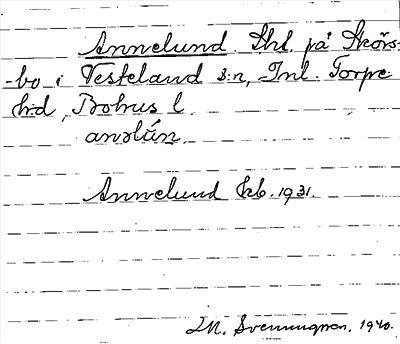 Annelund. Lht. på Skörs-
-bo i Vesteland s:n, Inl. Torpe
h:d, Bohus l.
anəlún.
Annelund Ekb. 1931.
M. Svenungson. 1940.